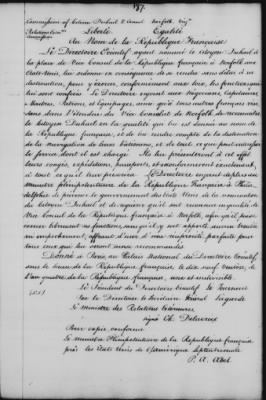 137.
Commission of Citizen Duhail V. Consul Norfolk Virg
Liberté Egalité
Au Nom de la République Française
Le Directoire Exécutif ayant nommé le citoyen Duhail à
la place de Vice Consul de la République française à Norfolk aux
Etats-Unis, lui ordonne en conséquence de se rendre sans délai à sa
destination pour y exercer, conformément aux loix, les fonctions
qui lui sont confiées. Le Directoire enjoint aux Négocians, Capitaines
Maitres, Patrons, et Equipages, ainsi qu'à tous autres français
dans l'étendue du Vice Consulat de Norfolk de reconnaitre
le Citoyen Duhail en la qualité qui lui est donnée au nom de
la République française, et de lui rendre compte de leur destination
de la navigation de leurs bâtimens, et de tout ce qui peut intéresser
le service dont il est chargé. Ils lui présenteront à cet effet
leurs congés, expéditions, passeports,
et tout ce qu'il leur prescrira. Le Directoire enjoint au
ministre plénipotentiaire de la République Française à Phila-
delphie de prévenir le gouvernement des Etats Unis de la nomination
du Citoyen Duhail et de requérir qu'il soit reconnu en qualité de
Vice Consul de la République française à Norfolk, afin qu'il puisse
exercer librement ses fonctions, sans qu'il y soit apporté aucun trouble
ni empêchement, offrant d'user d'une réciprocité parfaite pour
tous ceux qui lui seront ainsi recommandés.
Donné à Paris, au Palais National du Directoire Exécutif,
sous le sceau de la République française, le dix neuf
l'an quatre de la République française, une et indivisible.
Le Président du Directoire Exécutif Le Tourneur
Par le Directoire le Secrétaire Général Lagarde
Le ministre des Relations Extérieures
signé Ch. Delacroix
Pour copie conforme
Le ministre Plénipotentiaire de la République française
près les Etats Unis de l'Amérique Septentrionale
P. A. Adet